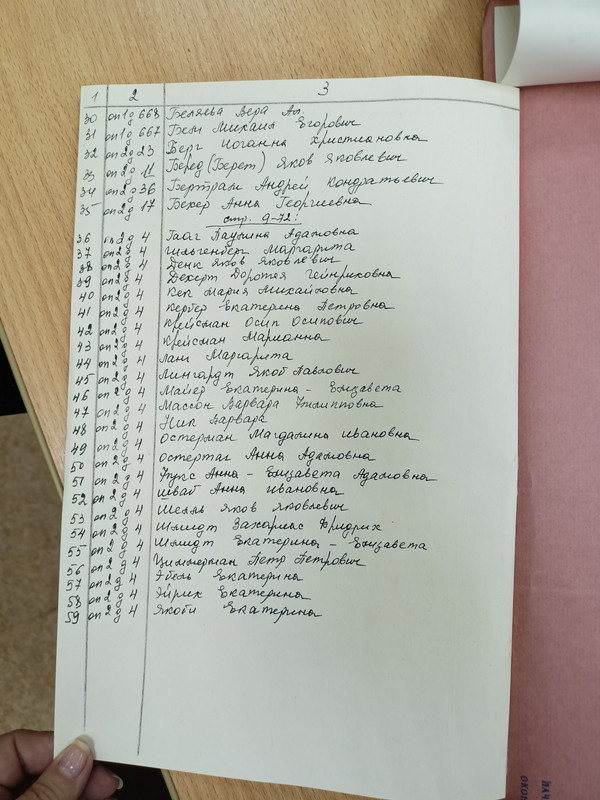 1 2 3
30 оп1д 668 Беляева Вера Ал.
31 оп1д 667 Бем Михаил Егорович
32 оп2д 23 Берг Иоганна Христиановна
33 оп2д 11 Беред (Берет) Яков Яковлевич
34 оп2д 36 Бертрам Андрей Кондратьевич
35 оп2д 17 Бехер Анна Георгиевна
стр. 9-72:
36 оп2д 4 Гааг Паулина Адамовна
37 оп2д 4 Гильгенберг Маргарита
38 оп2д 4 Денк Яков Яковлевич
39 оп2д 4 Дехерт Доротея Гейнриховна
40 оп2д 4 Кек Мария Михайловна
41 оп2д 4 Кербер Екатерина Петровна
42 оп2д 4 Крейсман Осип Осипович
43 оп2д 4 Крейсман Марианна
44 оп2д 4 Ланг Маргарита
45 оп2д 4 Лингардт Якоб Павлович
46 оп2д 4 Майер Екатерина - Елизавета
47 оп2д 4 Массон Варвара Филипповна
48 оп2д 4 Ник Варвара
49 оп2д 4 Остерман Магдалина Ивановна
50 оп2д 4 Остертаг Анна Адамовна
51 оп2д 4 Фукс Анна - Елизавета Адамовна
52 оп2д 4 Шваб Анна Ивановна
53 оп2д 4 Шелль Яков Яковлевич
54 оп2д 4 Шмидт Захариас Фридрих
55 оп2д 4 Шмидт Екатерина - Елизавета
56 оп2д 4 Циммерман Петр Петрович
57 оп2д 4 Эбель Екатерина
58 оп2д 4 Эйрих Екатерина
59 оп2д 4 Якоби Екатерина